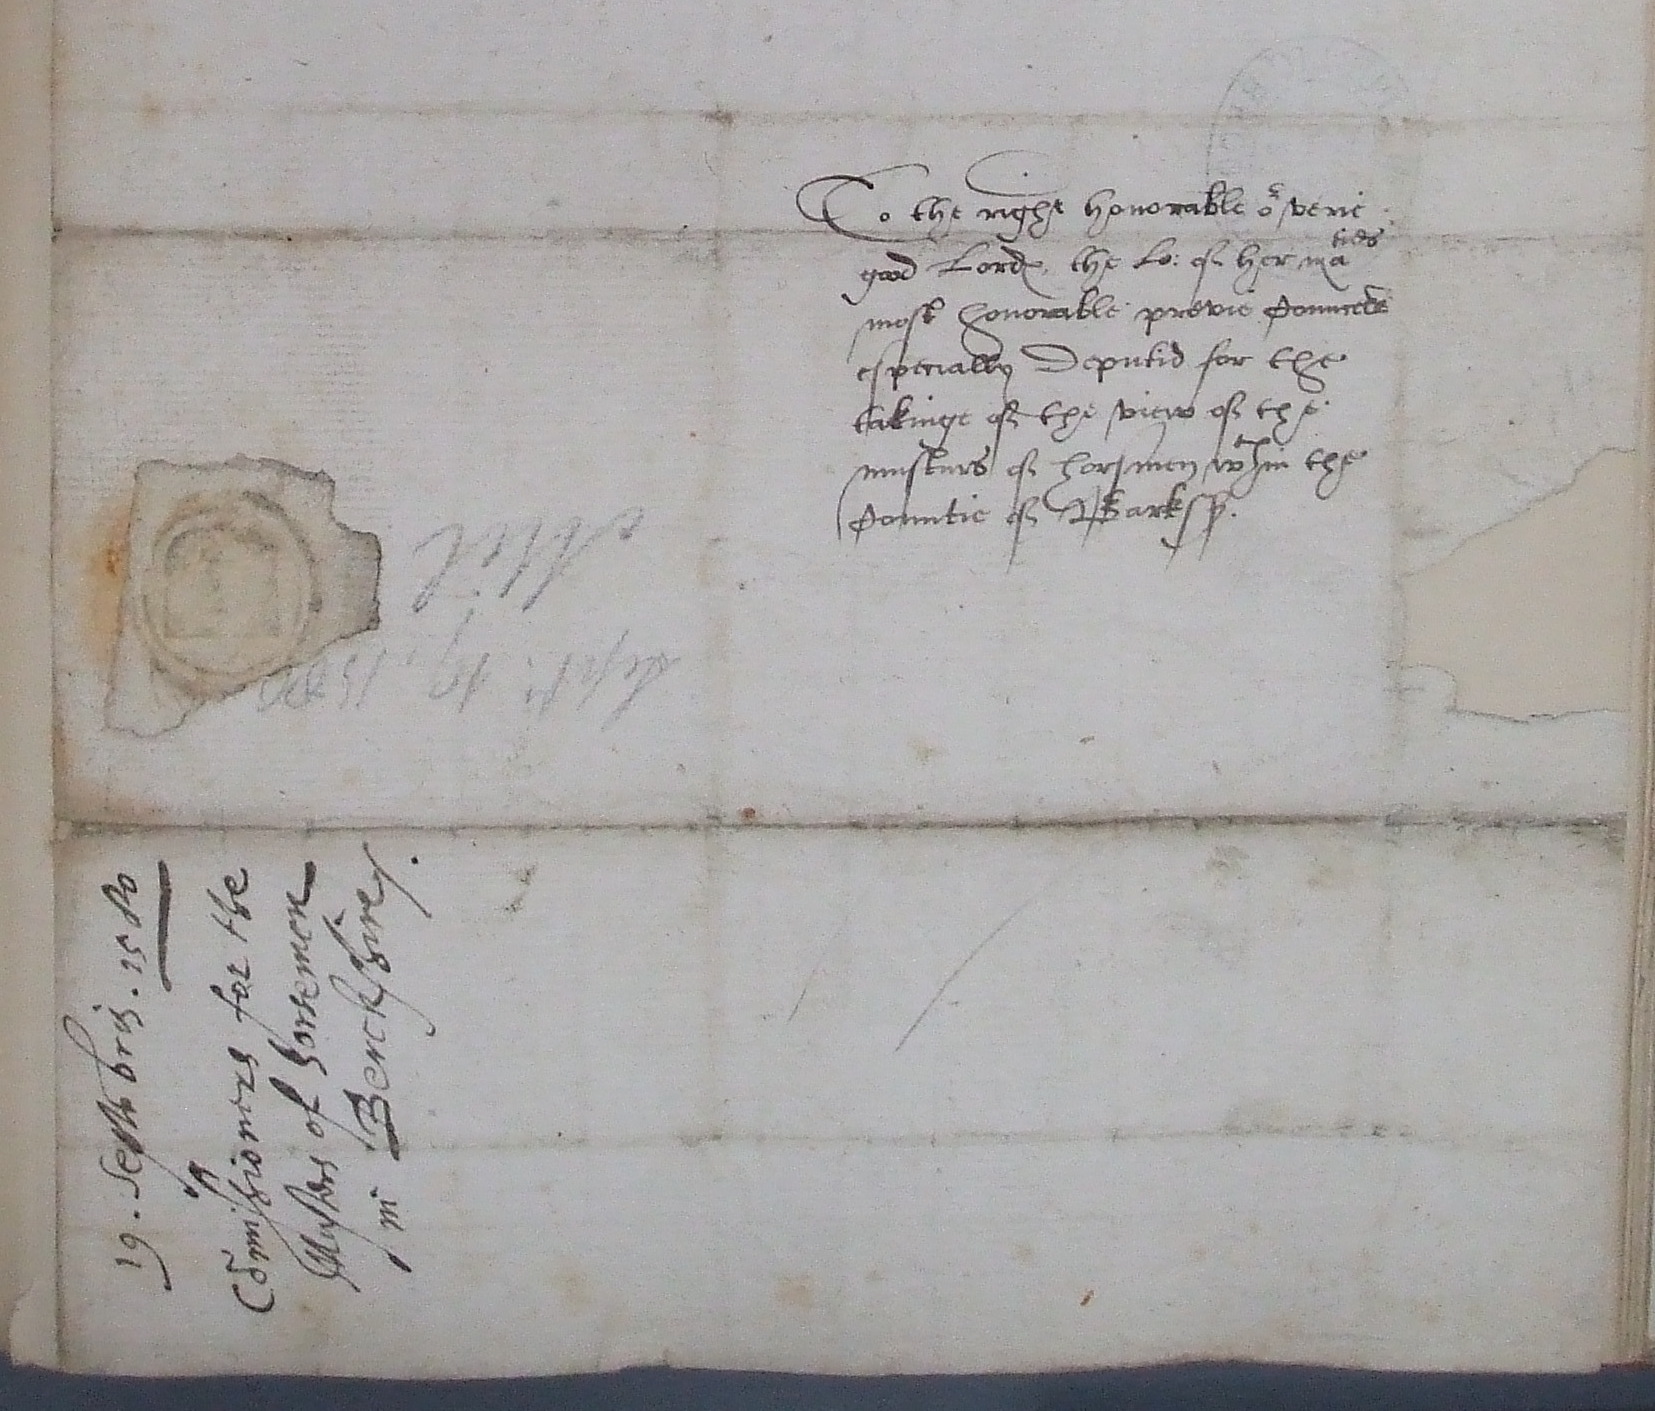 To the right honorable oʳ verie
good Lordes, the Lo: of her maties
most honorable previe Councell
especially Deputid for the
takinge of the view of the
musturs of horsmen wthin the
Countie of Barksh.
Sept. 19. 1580
19. Septembris. 1580
Cōmissioners for the
Musters of horsemen
in Berckshire.